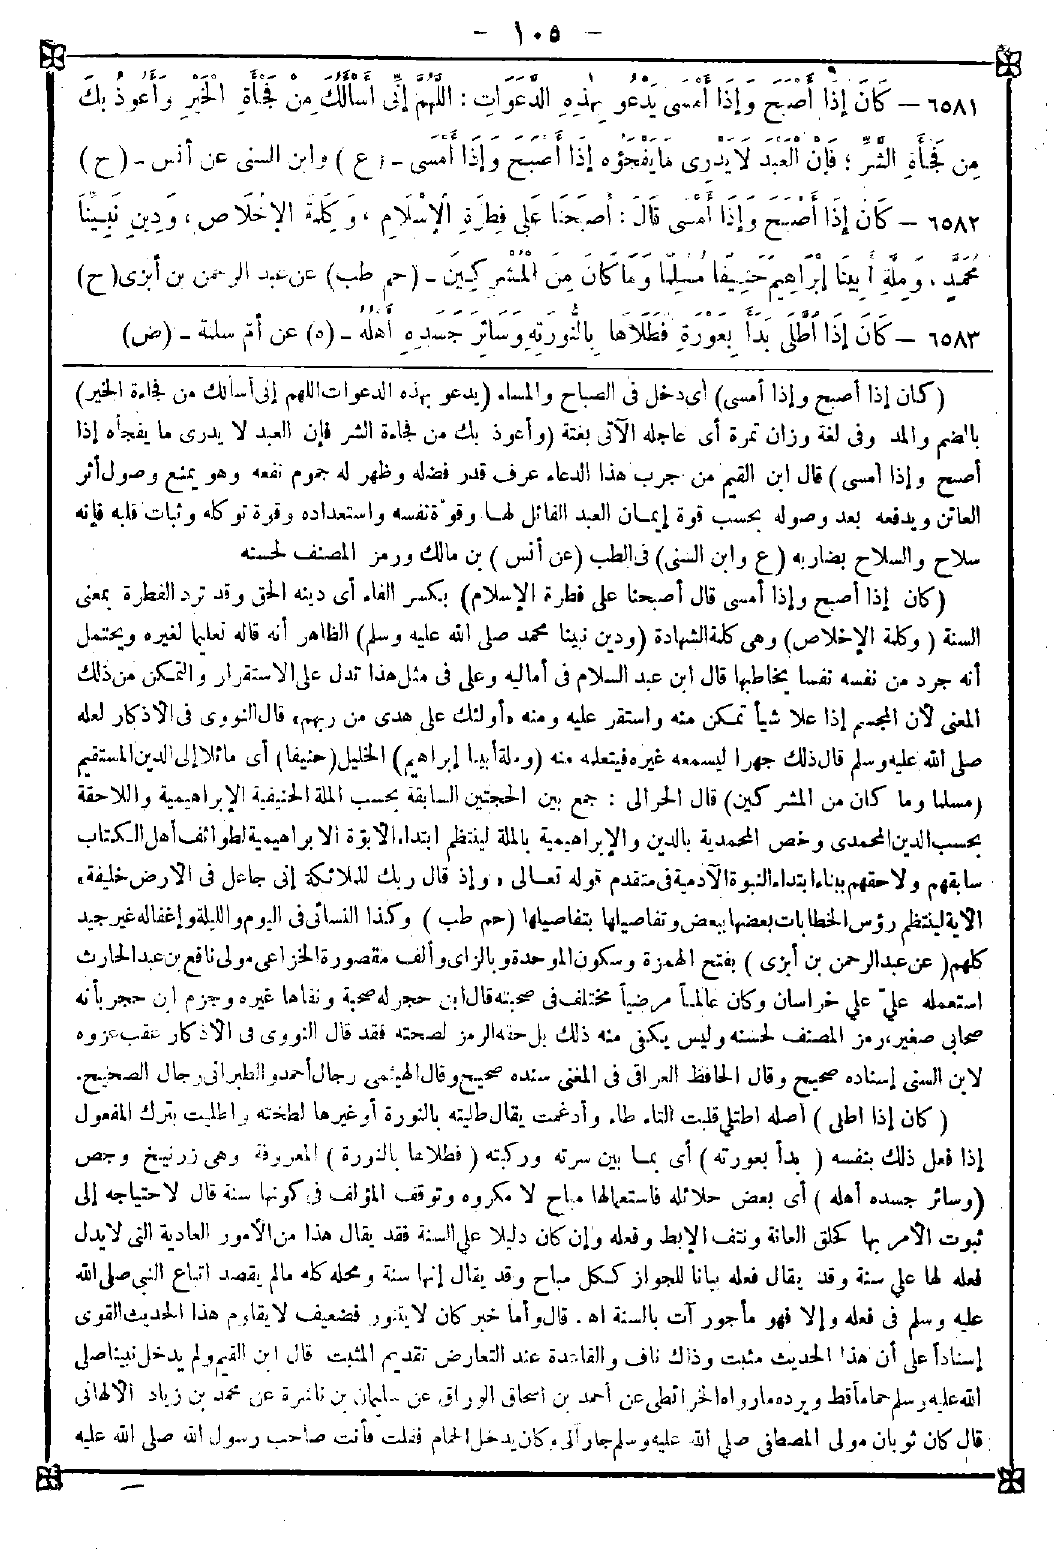 - ١٠٥ -
٦٥٨١ - كَانَ إِذَا أَصْبَحَ وَإِذَا أَمْسَى يَدْعُو بِهٰذِهِ الدَّعَوَاتِ : اللَّهُمَّ إِنِّى أَسْأَلُكَ مِنْ فَجْأَةِ الْخَيْرِ وَأَعُوذُ بِكَ
مِن فَجْأَةِ الشَّرِّ ؛ فَإِنَّ الْعَبْدَ لَا يَدْرِى مَا يَفْجَؤُه إِذَا أَصْبَحَ وَإِذَا أَمْسَى - (ع) وابن السنى عن أنس - (ح)
٦٥٨٢ - كَانَ إِذَا أَصْبَحَ وَإِذَا أَمْسَى قَالَ : أَصْبَحْنَا عَلَى فِطْرَةِ الْإِسْلَامِ ، وَكَلِمَةِ الْإِخْلَاصِ ، وَدِينِ نَبِيِّنَا
مُحَمَّدٍ ، وَمِلَّةِ أَبِينَا إِبْرَاهِيمَ حَنِيفًا مُسْلِمًا وَمَا كَانَ مِنَ الْمُشْرِكِينَ - (حم طب) عن عبد الرحمن بن أبزى (ح)
٦٥٨٣ - كَانَ إِذَا اطَّلَى بَدَأَ بِعَوْرَتِهِ فَطَلَاهَا بِالنُّورَةِ وَسَائِرَ جَسَدِهِ أَهْلُهُ - (ه) عن أمّ سلمة - (ض)
(كان إذا أصبح وإذا أمسى) أى دخل فى الصباح والمساء (يدعو بهذه الدعوات اللهم إنى أسألك من فجاءة الخير)
بالضم والمد وفى لغة وزان تمرة أى عاجله الآتى بغتة (وأعوذ بك من فجاءة الشر فإن العبد لا يدرى ما يفجأه إذا
أصبح وإذا أمسى) قال ابن القيم من جرب هذا الدعاء عرف قدر فضله وظهر له جموم نفعه وهو يمنع وصول أثر
العائن ويدفعه بعد وصوله بحسب قوة إيمان العبد القائل لها وقوّة نفسه واستعداده وقوة توكله وثبات قلبه فإنه
سلاح والسلاح بضاربه (ع وابن السنى) فى الطب (عن أنس) بن مالك ورمز المصنف لحسنه
(كان إذا أصبح وإذا أمسى قال أصبحنا على فطرة الإسلام) بكسر الفاء أى دينه الحق وقد ترد الفطرة بمعنى
السنة (وكلمة الإخلاص) وهى كلمة الشهادة (ودين نبينا محمد صلى الله عليه وسلم) الظاهر أنه قاله تعليما لغيره ويحتمل
أنه جرد من نفسه نفسا يخاطبها قال ابن عبد السلام فى أماليه وعلى فى مثل هذا تدل على الاستقرار والتمكن من ذلك
المعنى لأن المجسم إذا علا شيأ تمكن منه واستقر عليه ومنه «أولئك على هدى من ربهم» قال النووى فى الاذكار لعله
صلى الله عليه وسلم قال ذلك جهرا ليسمعه غيره فيتعلمه منه (وملة أبينا إبراهيم) الخليل (حنيفا) أى مائلا إلى الدين المستقيم
(مسلما وما كان من المشركين) قال الحرالى : جمع بين الحجتين السابقة بحسب الملة الحنيفية الإبراهيمية واللاحقة
بحسب الدين المحمدى وخص المحمدية بالدين والإبراهيمية بالملة لينتظم ابتداء الأبوّة الابراهيمية لطوائف أهل الكتاب
سابقهم ولاحقهم ببناء ابتداء النبوة الآدمية فى متقدم قوله تعالى «وإذ قال ربك للملائكة إنى جاعل فى الارض خليفة»
الآية لينتظم رؤس الخطابات بعضها ببعض وتفاصيلها بتفاصيلها (حم طب) وكذا النسائى فى اليوم والليلة وإغفاله غير جيد
كلهم (عن عبد الرحمن بن أبزى) بفتح الهمزة وسكون الموحدة وبالزاى وألف مقصورة الخزاعى مولى نافع بن عبد الحارث
استعمله علىّ على خراسان وكان عالماً مرضياً مختلف فى صحبته قال ابن حجر له صحبة ونفاها غيره وجزم ابن حجر بأنه
صحابى صغير، رمز المصنف لحسنه وليس يكفى منه ذلك بل حقه الرمز لصحته فقد قال النووى فى الاذكار عقب عزوه
لابن السنى إسناده صحيح وقال الحافظ العراقى فى المغنى سنده صحيح وقال الهيثمى رجال أحمد والطبرانى رجال الصحيح.
(كان إذا اطلى) أصله اطتلى قلبت التاء طاء وأدغمت يقال طليته بالنورة أو غيرها لطخته واطليت بترك المفعول
إذا فعل ذلك بنفسه (بدأ بعورته) أى بما بين سرته وركبته (فطلاها بالنورة) المعروفة وهى زرنيخ وجص
(وسائر جسده أهله) أى بعض حلائله فاستعمالها مباح لا مكروه وتوقف المؤلف فى كونها سنة قال لاحتياجه إلى
ثبوت الأمر بها كحلق العانة ونتف الإبط وفعله وإن كان دليلا على السنة فقد يقال هذا من الأمور العادية التى لا يدل
فعله لها على سنة وقد يقال فعله بيانا للجواز ككل مباح وقد يقال إنها سنة ومحله كله مالم يقصد اتباع النبى صلى الله
عليه وسلم فى فعله وإلا فهو مأجور آت بالسنة اه. قال وأما خبر كان لا يتنور فضعيف لا يقاوم هذا الحديث القوى
إسناداً على أن هذا الحديث مثبت وذاك ناف والقاعدة عند التعارض تقديم المثبت قال ابن القيم ولم يدخل نبينا صلى
الله عليه وسلم حماما قط ويرده مارواه الخرائطى عن أحمد بن اسحاق الوراق عن سليمان بن ناشرة عن محمد بن زياد الالهانى
قال كان ثوبان مولى المصطفى صلى الله عليه وسلم جارا لى وكان يدخل الحمام فقلت فأنت صاحب رسول الله صلى الله عليه